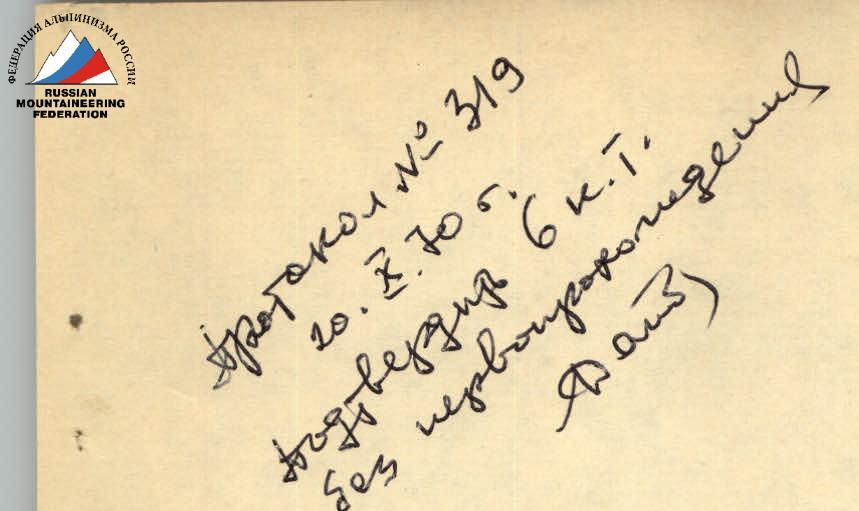 ФЕДЕРАЦИЯ АЛЬПИНИЗМА РОССИИ
RUSSIAN
MOUNTAINEERING
FEDERATION
Протокол № 319
20. X. 70 г.
Подтвердить 6 к.т.
без первопрохождения